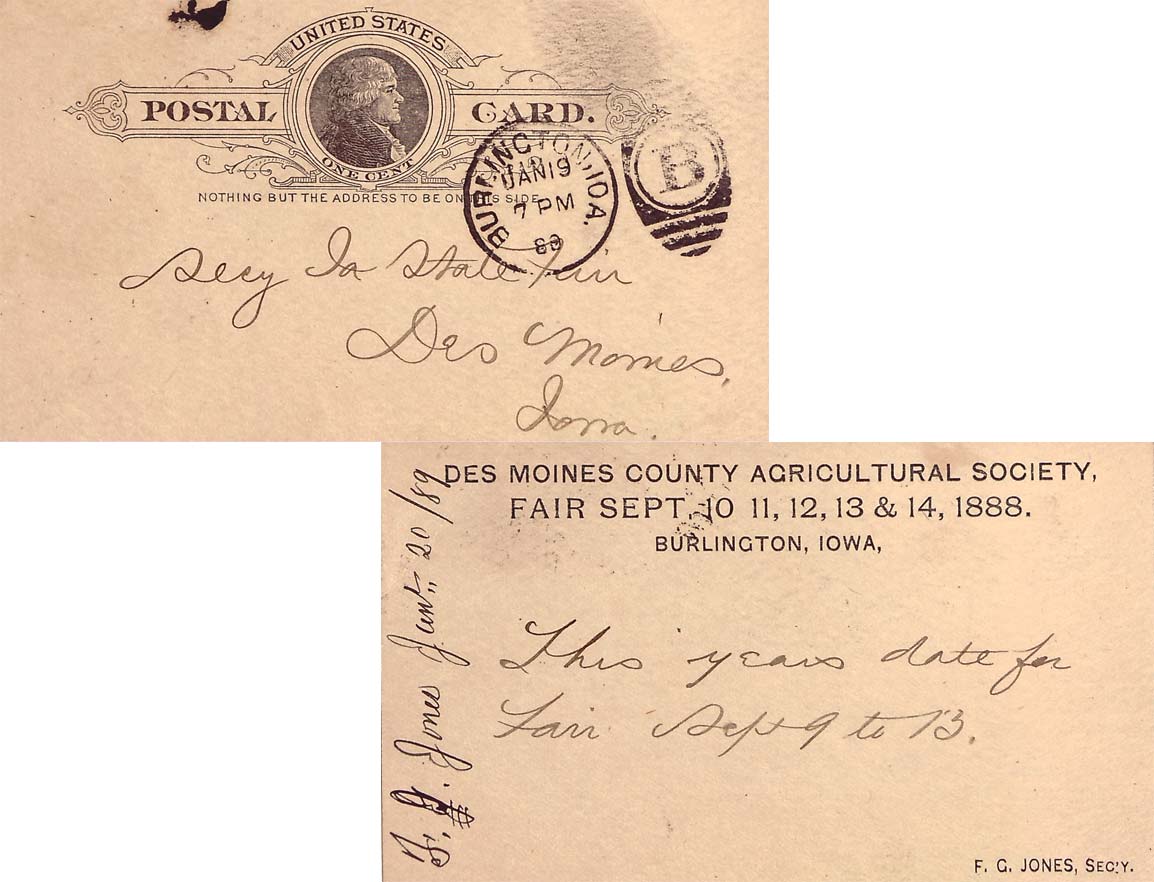 UNITED STATES
POSTAL CARD.
ONE CENT
NOTHING BUT THE ADDRESS TO BE ON THIS SIDE
BURLINGTON, IOA.
JAN 19
7 PM
89
B
Secy Ia State Fair
Des Moines,
Iowa.
DES MOINES COUNTY AGRICULTURAL SOCIETY,
FAIR SEPT. 10 11, 12, 13 & 14, 1888.
BURLINGTON, IOWA,
This years date for
Fair Sept 9 to 13.
F. G. JONES, SEC'Y.
Jones Jany 20/89